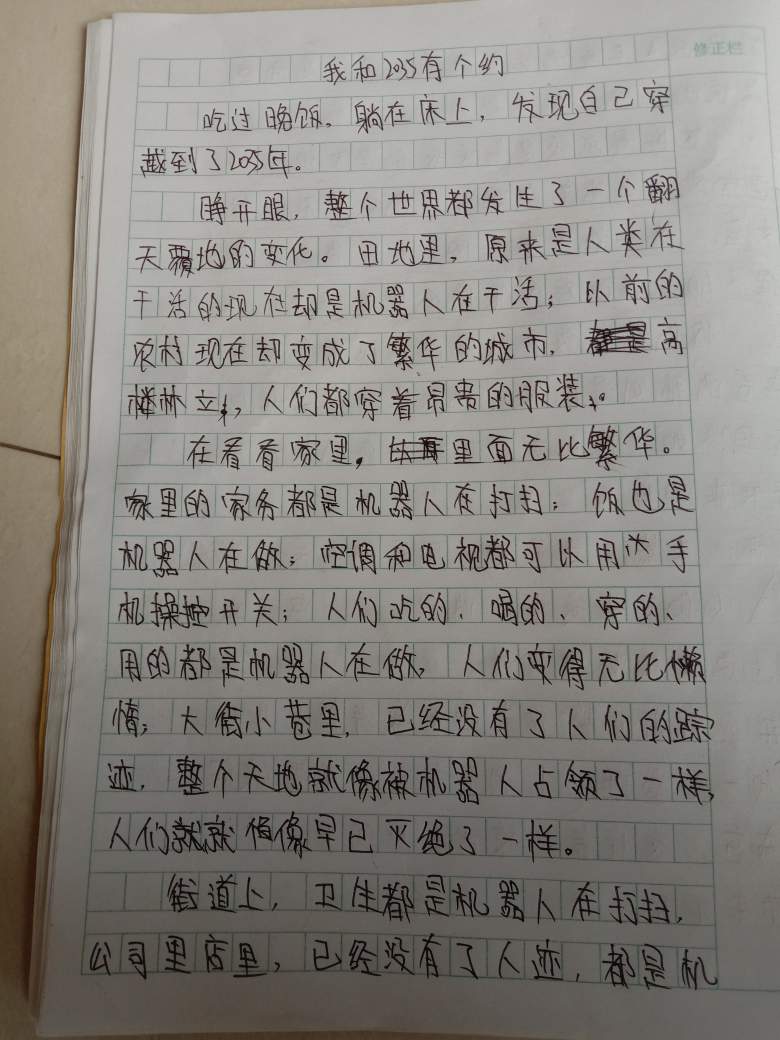 修正栏
我和2035有个约
吃过晚饭，躺在床上，发现自己穿
越到了2035年。
睁开眼，整个世界都发生了一个翻
天覆地的变化。田地里，原来是人类在
干活的现在却是机器人在干活；以前的
农村现在却变成了繁华的城市，高
楼林立，人们都穿着昂贵的服装。
在看看家里，里面无比繁华。
家里的家务都是机器人在打扫；饭也是
机器人在做；空调和电视都可以用手
机操控开关；人们吃的、喝的、穿的、
用的都是机器人在做，人们变得无比懒
惰；大街小巷里，已经没有了人们的踪
迹，整个天地就像被机器人占领了一样，
人们就就像早已灭绝了一样。
街道上，卫生都是机器人在打扫，
公司里店里，已经没有了人迹，都是机